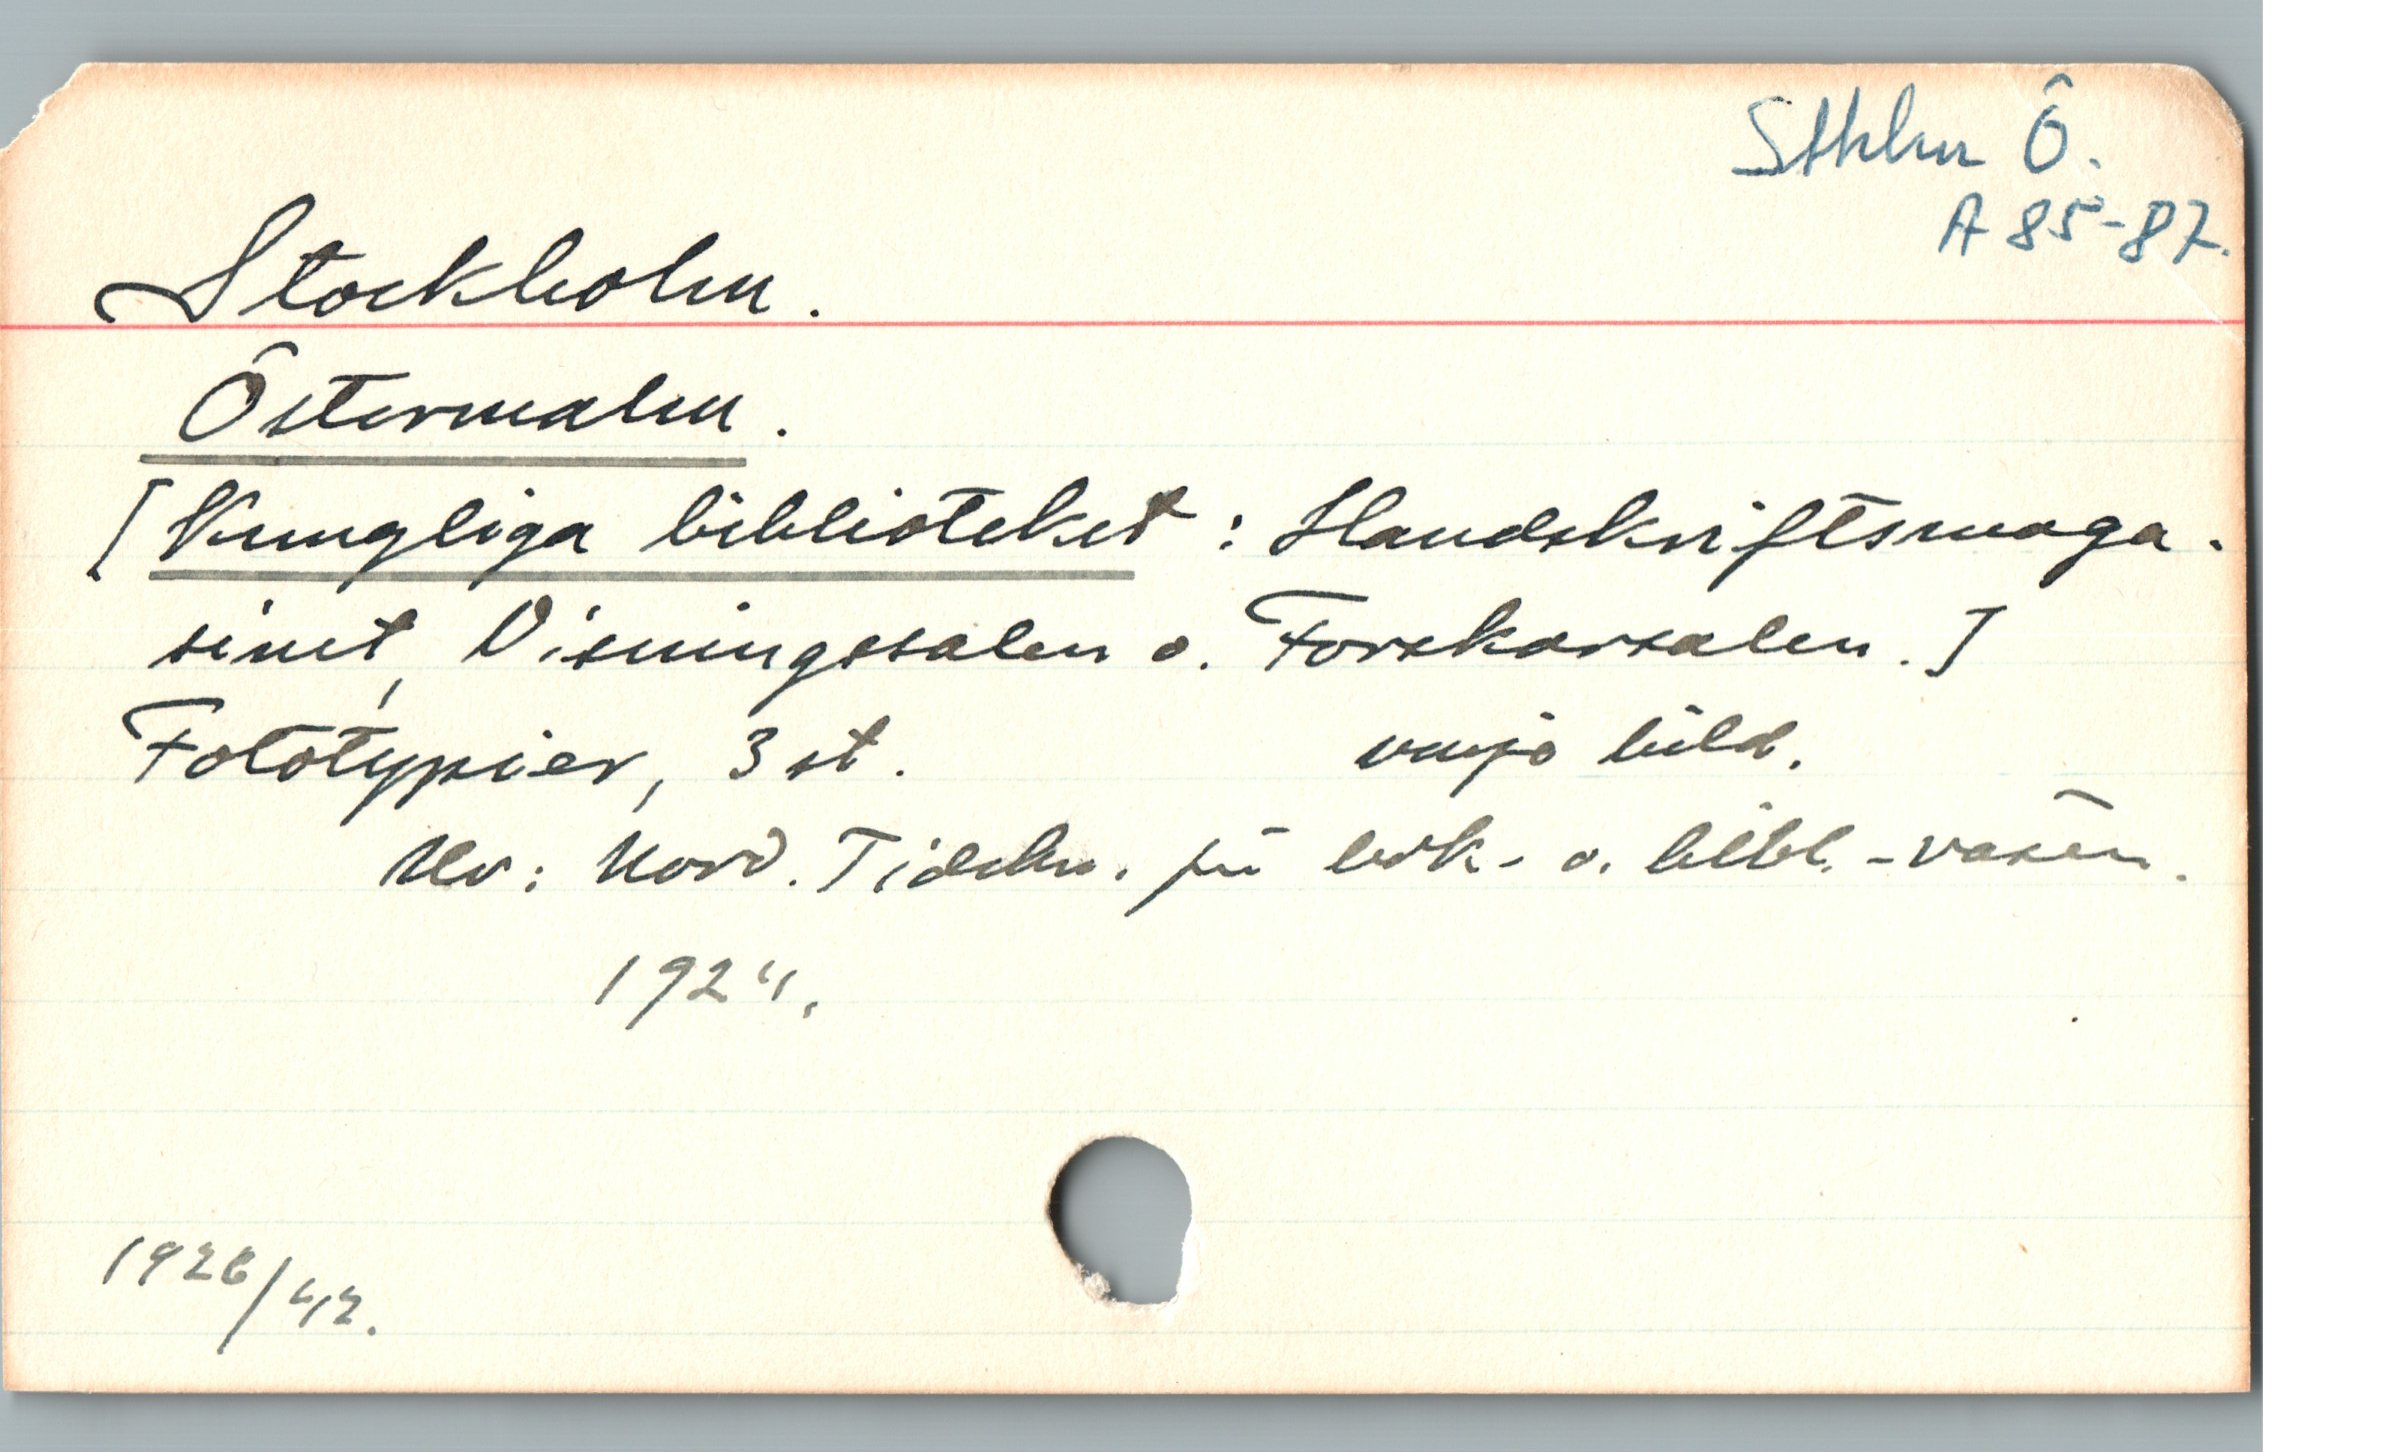 Sthlm Ö.
A 85-87.
Stockholm.
Östermalm.
[Kungliga biblioteket: Handskriftsmaga-
sinet, Visningssalen o. Forskarsalen.]
Fototypier, 3 st. bild.
Ur: Nord. Tidskr. för bok- o. bibl.-väsen.
1924.
1926/42.